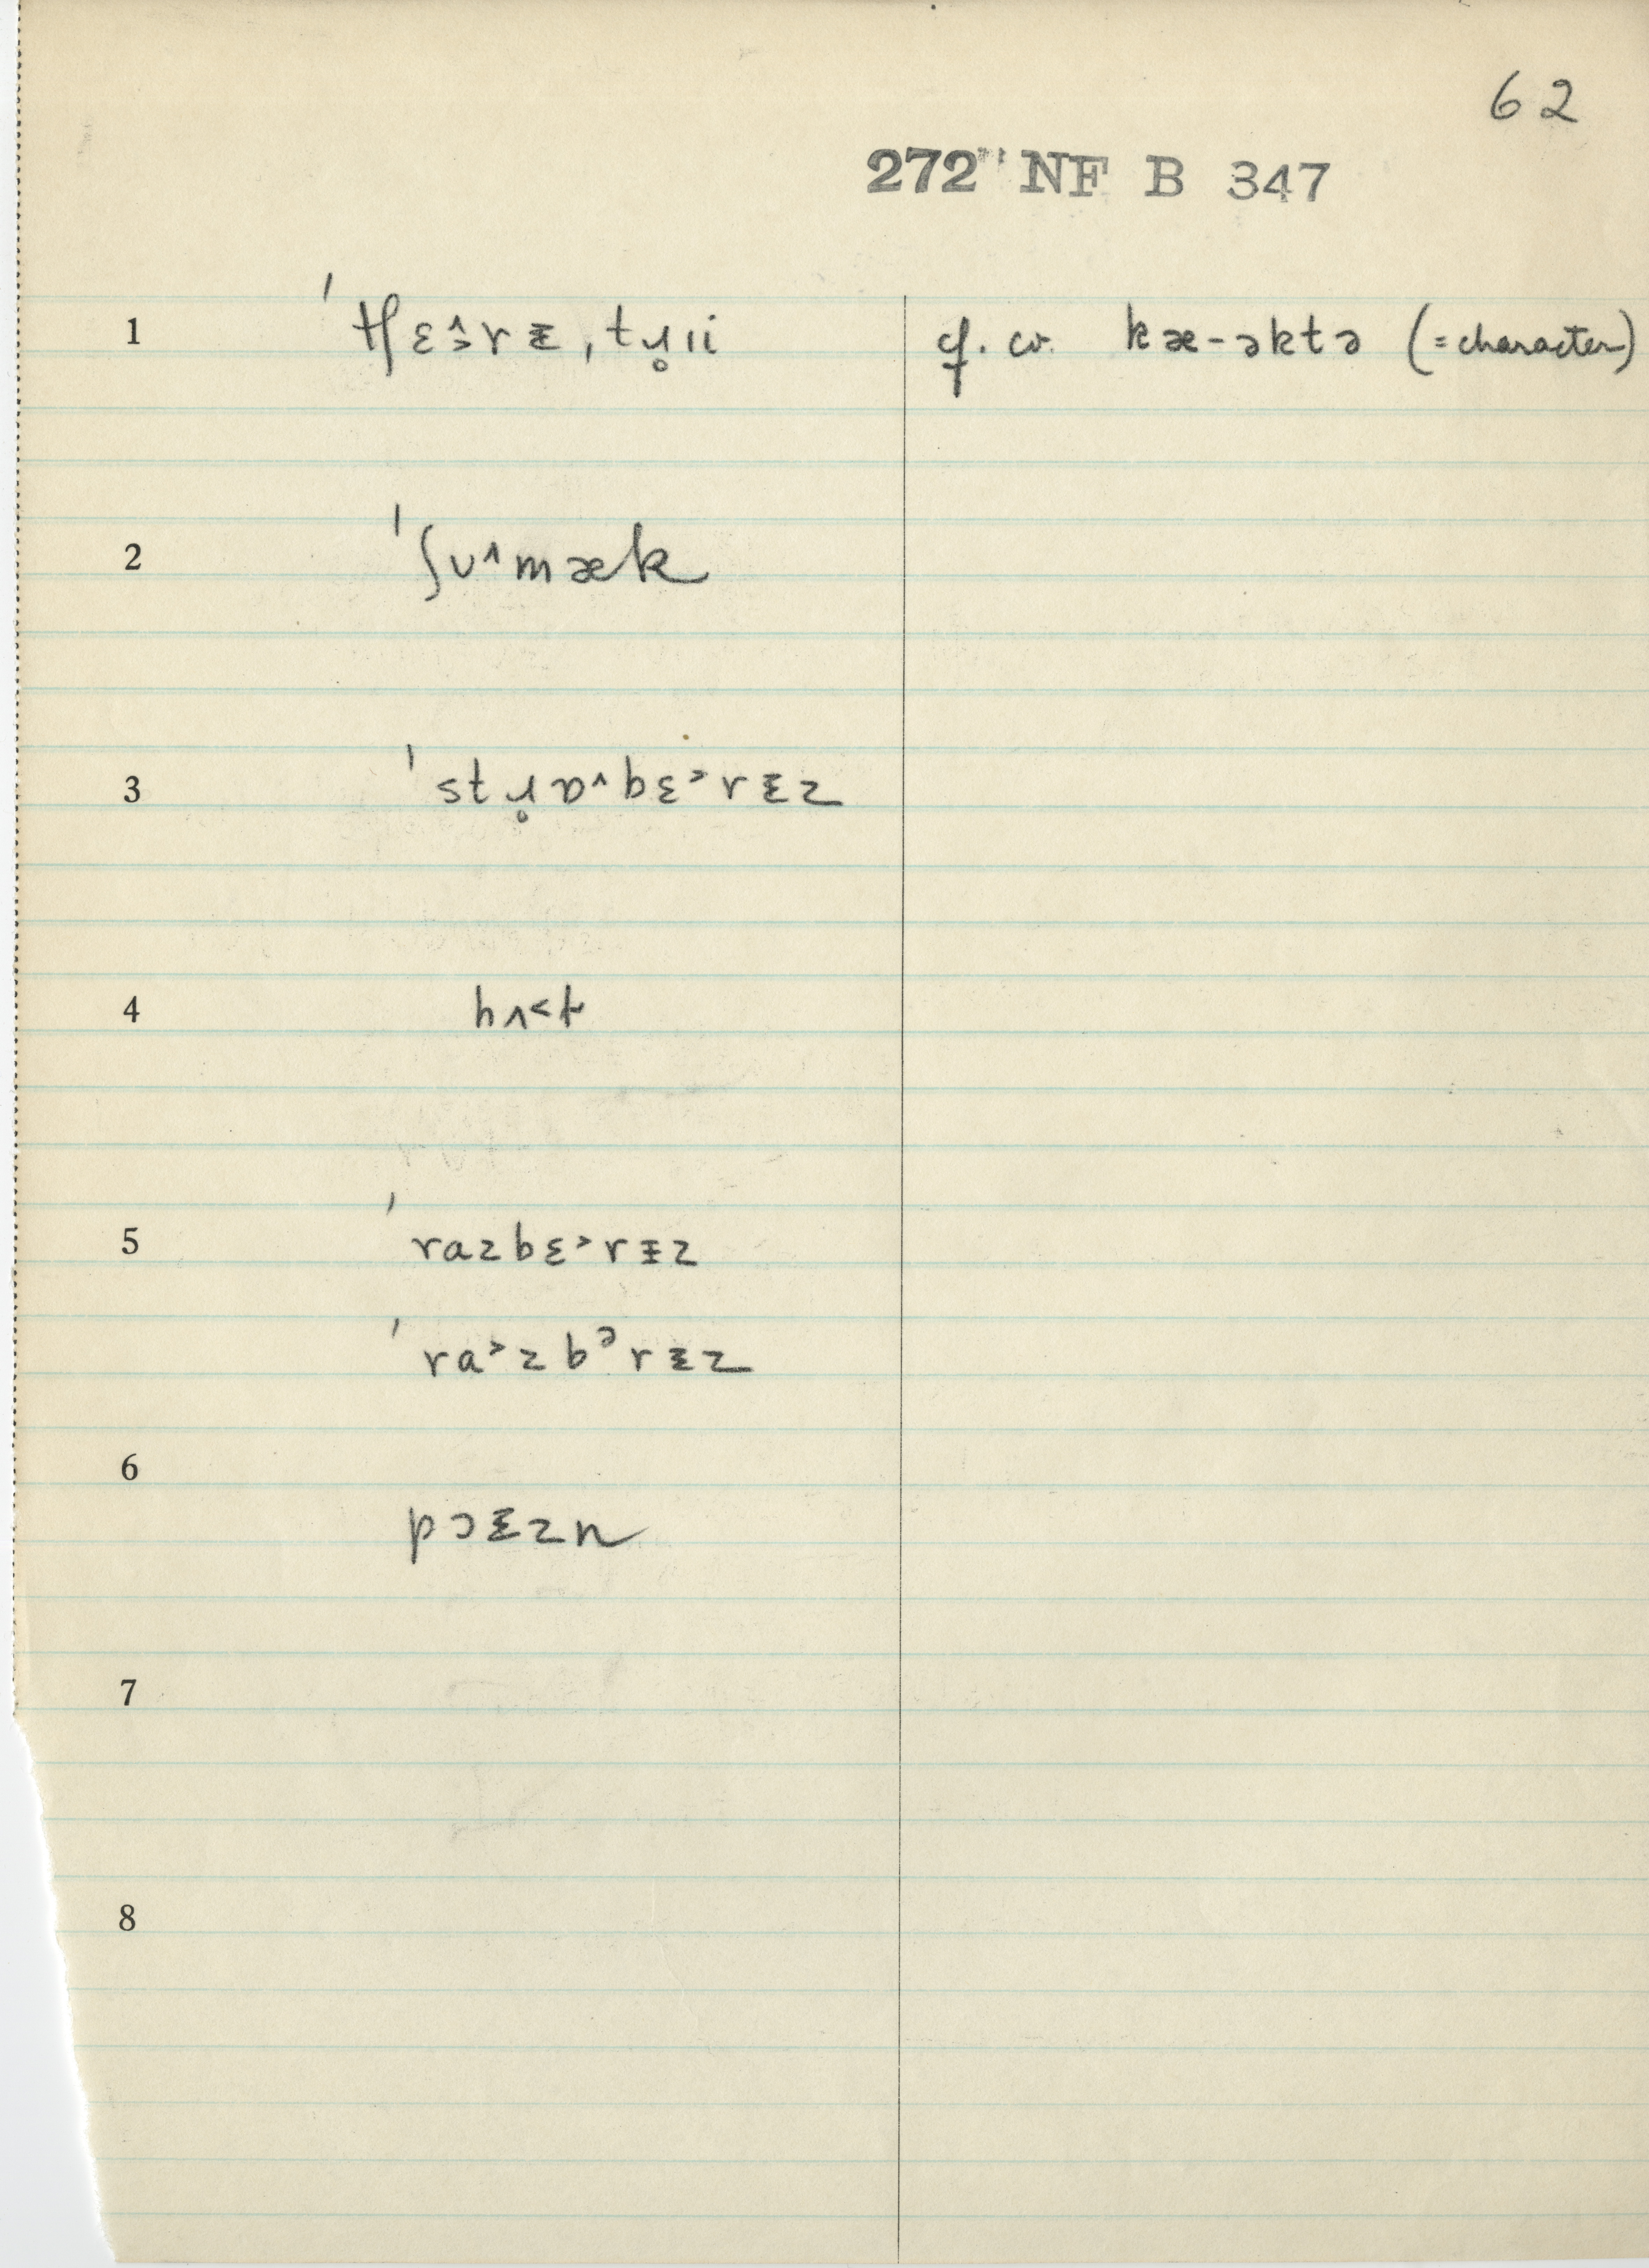 62
272 NF B 347
1 ˈtʃɛ˄˃rᵻ, tɹ̥ɪi cf. cv. kæ-əktə (= character)
2 ˈʃʊ˄mæk
3 ˈstɹ̥ɒ˄bɛ˃rᵻz
4 hʌ˂t
5 ˈrazbɛ˃rᵻz
ˈra˃zbᵊrᵻz
6 pɔᵻzn
7
8